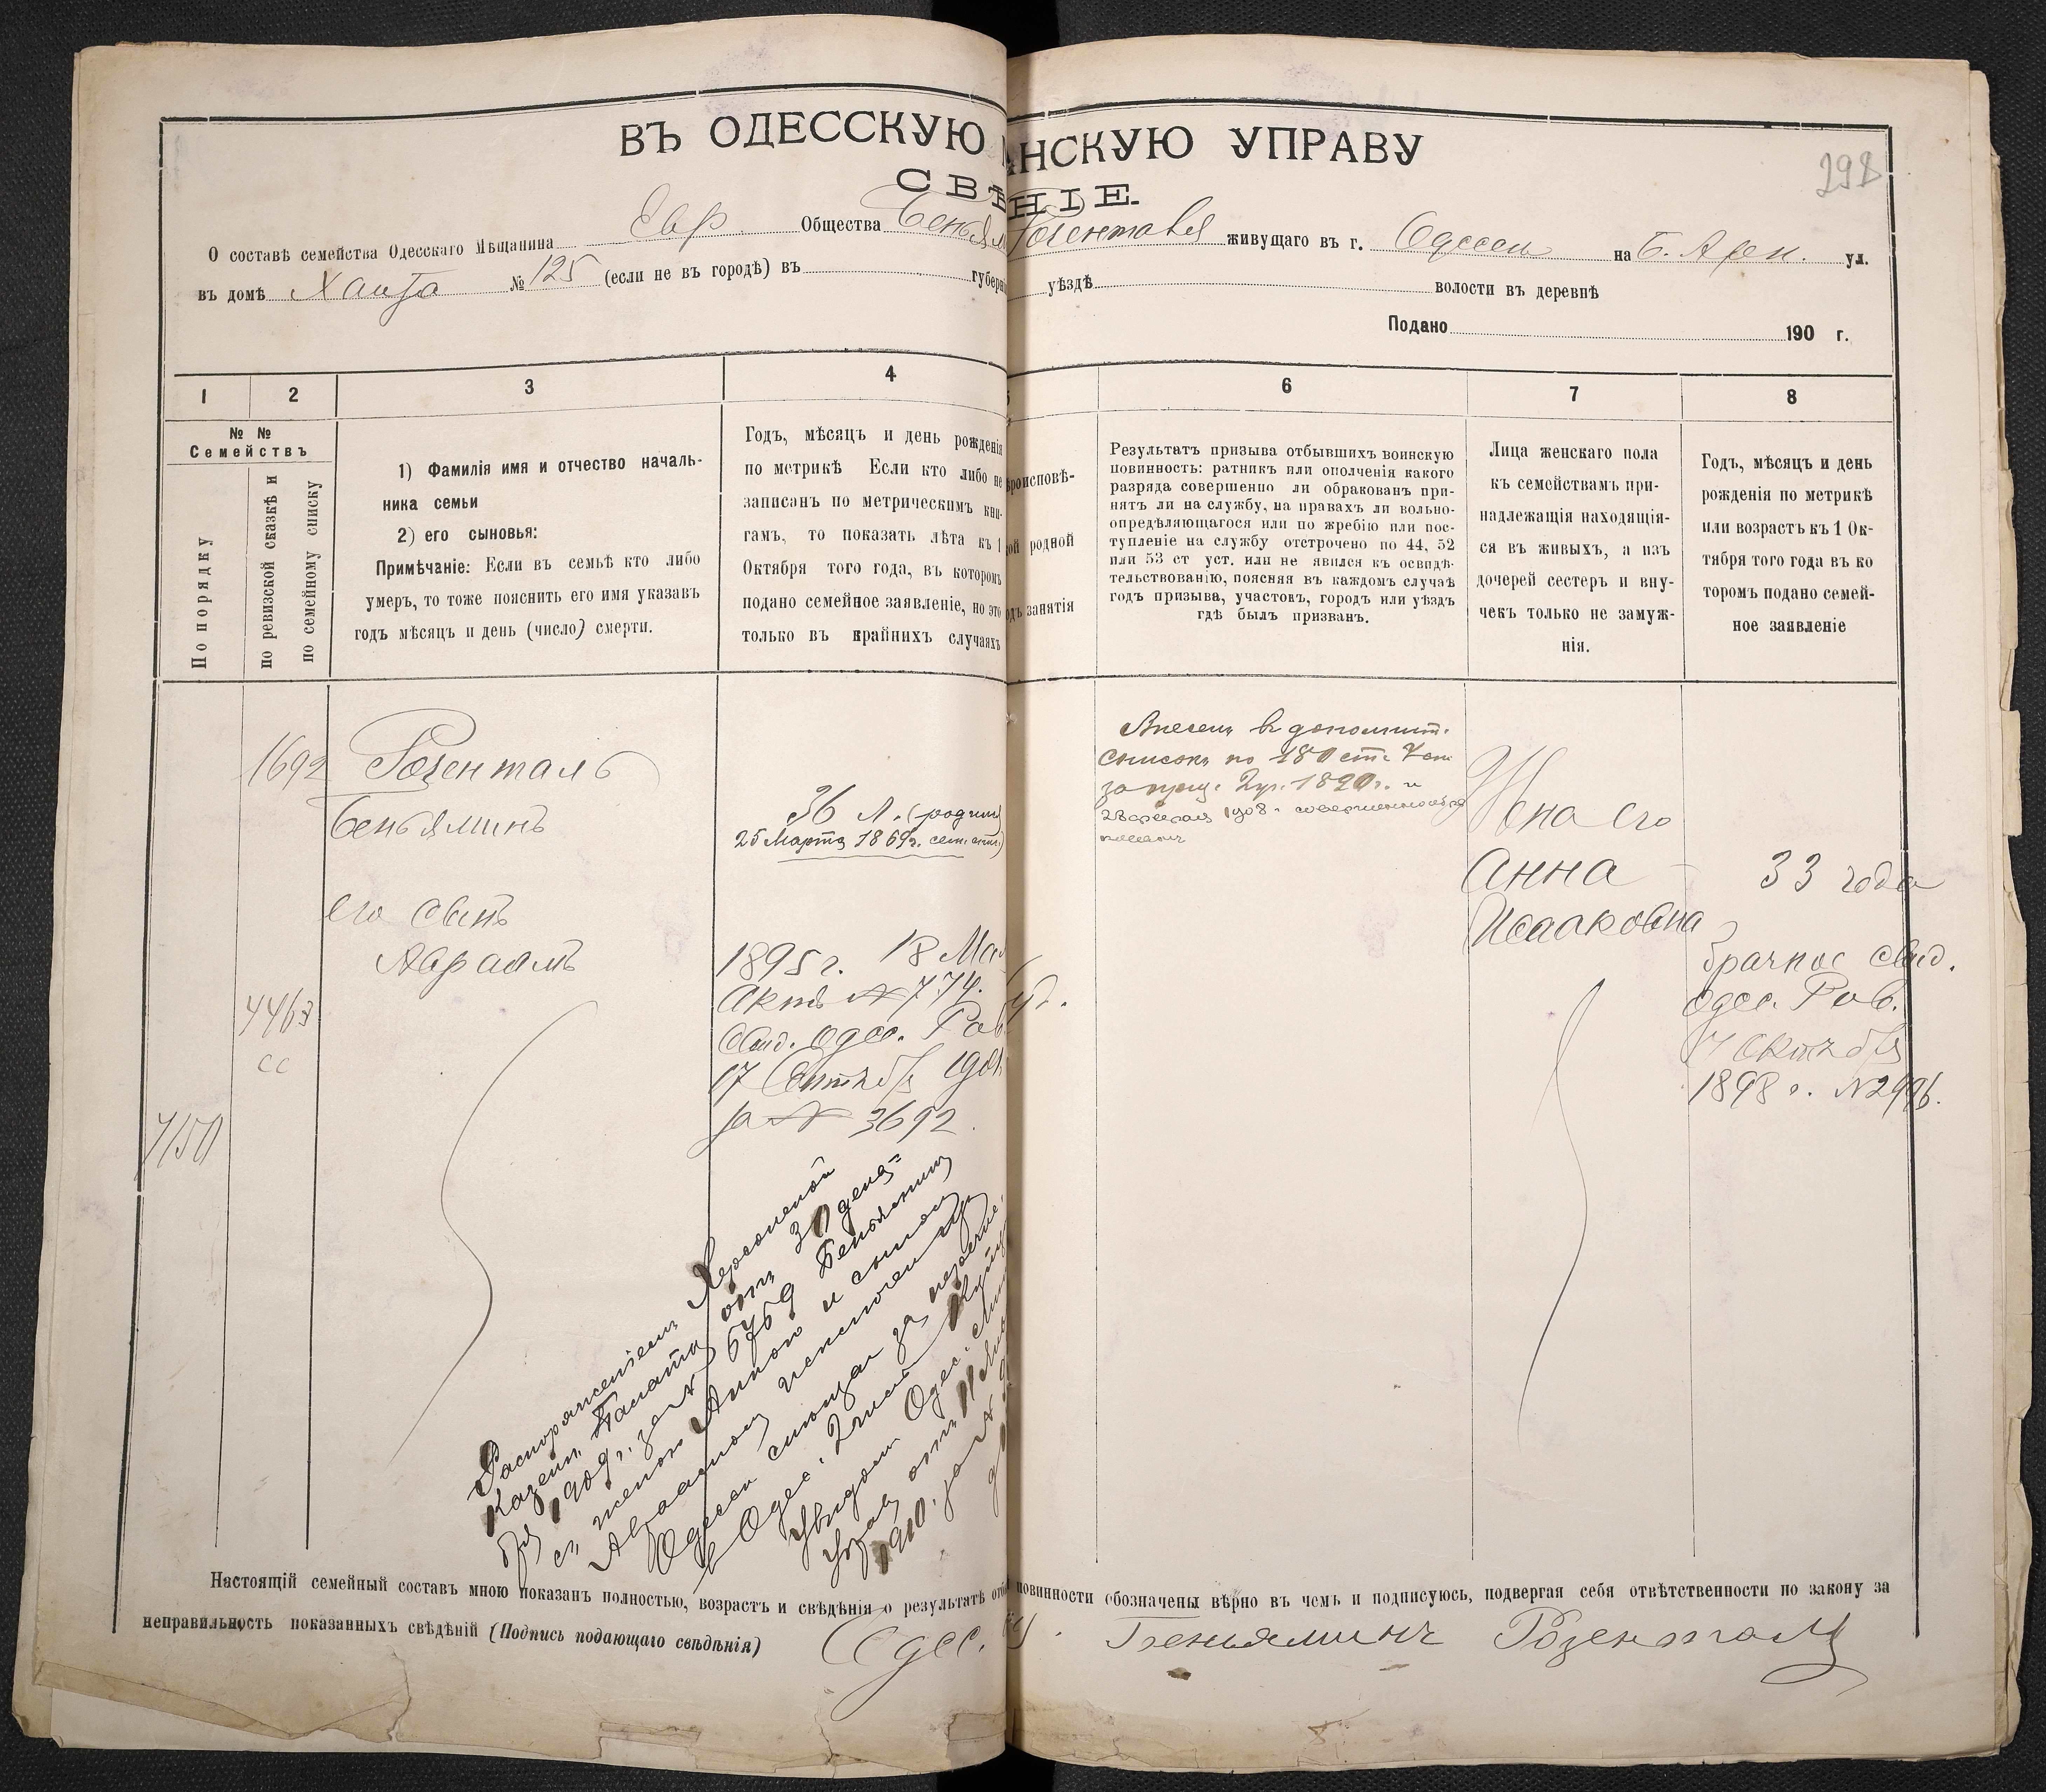 ВЪ ОДЕССКУЮ АНСКУЮ УПРАВУ
298
СВѢ НІЕ.
О составѣ семейства Одесскаго Мѣщанина Евр. Общества Беньям Розенталя живущаго въ г. Одессы на Б. Арн. ул.
въ домѣ № 125 (если не въ городѣ) въ губерні уѣздѣ волости въ деревнѣ
Подано 190 г.
1
2
3
4
6
7
8
№ №
Семействъ
По порядку
по ревизской сказкѣ и
по семейному списку
1) Фамилія имя и отчество началь-
ника семьи
2) его сыновья:
Примѣчаніе: Если въ семьѣ кто либо
умеръ, то тоже пояснить его имя указавъ
годъ мѣсяцъ и день (число) смерти.
Годъ, мѣсяцъ и день рожденія
по метрикѣ Если кто либо не
записанъ по метрическимъ кни-
гамъ, то показать лѣта къ 1
Октября того года, въ которомъ
подано семейное заявленіе, но это
только въ крайнихъ случаяхъ
роисповѣ-
ой родной
одъ занятія
Результатъ призыва отбывшихъ воинскую
повинность: ратникъ или ополченія какого
разряда совершенно ли обракованъ при-
нятъ ли на службу, на правахъ ли вольно-
опредѣляющагося или по жребію или пос-
тупленіе на службу отстрочено по 44, 52
или 53 ст уст. или не явился къ освидѣ-
тельствованію, поясняя въ каждомъ случаѣ
годъ призыва, участокъ, городъ или уѣздъ
гдѣ былъ призванъ.
Лица женскаго пола
къ семействамъ при-
надлежащія находящія-
ся въ живыхъ, а изъ
дочерей сестеръ и вну-
чекъ только не замуж-
нія.
Годъ, мѣсяцъ и день
рожденія по метрикѣ
или возрастъ къ 1 Ок-
тября того года въ ко
торомъ подано семей-
ное заявленіе
1692
Розенталь
Беньяминъ
его сынъ
Авраамъ
4463
СС
7150
36 л. (родился
25 Марта 1869 г. сем. спис.)
1895 г. 18 Мая
Актъ № 774.
Свид. Одес. Рав.
17 Сентября
за № 3692.
Внесенъ в дополнит.
список по 180 ст. Уст
за приз. 1890 г. и
1908 г. совершенно
Жена его
Анна
Исааковна
33 года
Брачное свид.
Одес. Рав.
Октября
1898 г. №
Распоряжением Херсонской
Казен. Палаты от 30 дека=
бря 1909 г. за № 6769 Беньямин
с женою Анною и сыном
Авраамом исключены из
Одесск.
в Одес. 2 гильд. Купцы
Увидом. Одес.
Управ. от 11
1910. за №
Настоящій семейный составъ мною показанъ полностью, возрастъ и свѣдѣнія о результатѣ отб повинности обозначены вѣрно въ чемъ и подписуюсь, подвергая себя отвѣтственности по закону за
неправильность показанныхъ свѣдѣній (Подпись подающаго свѣдѣнія) Одес. Беньяминъ Розенталь